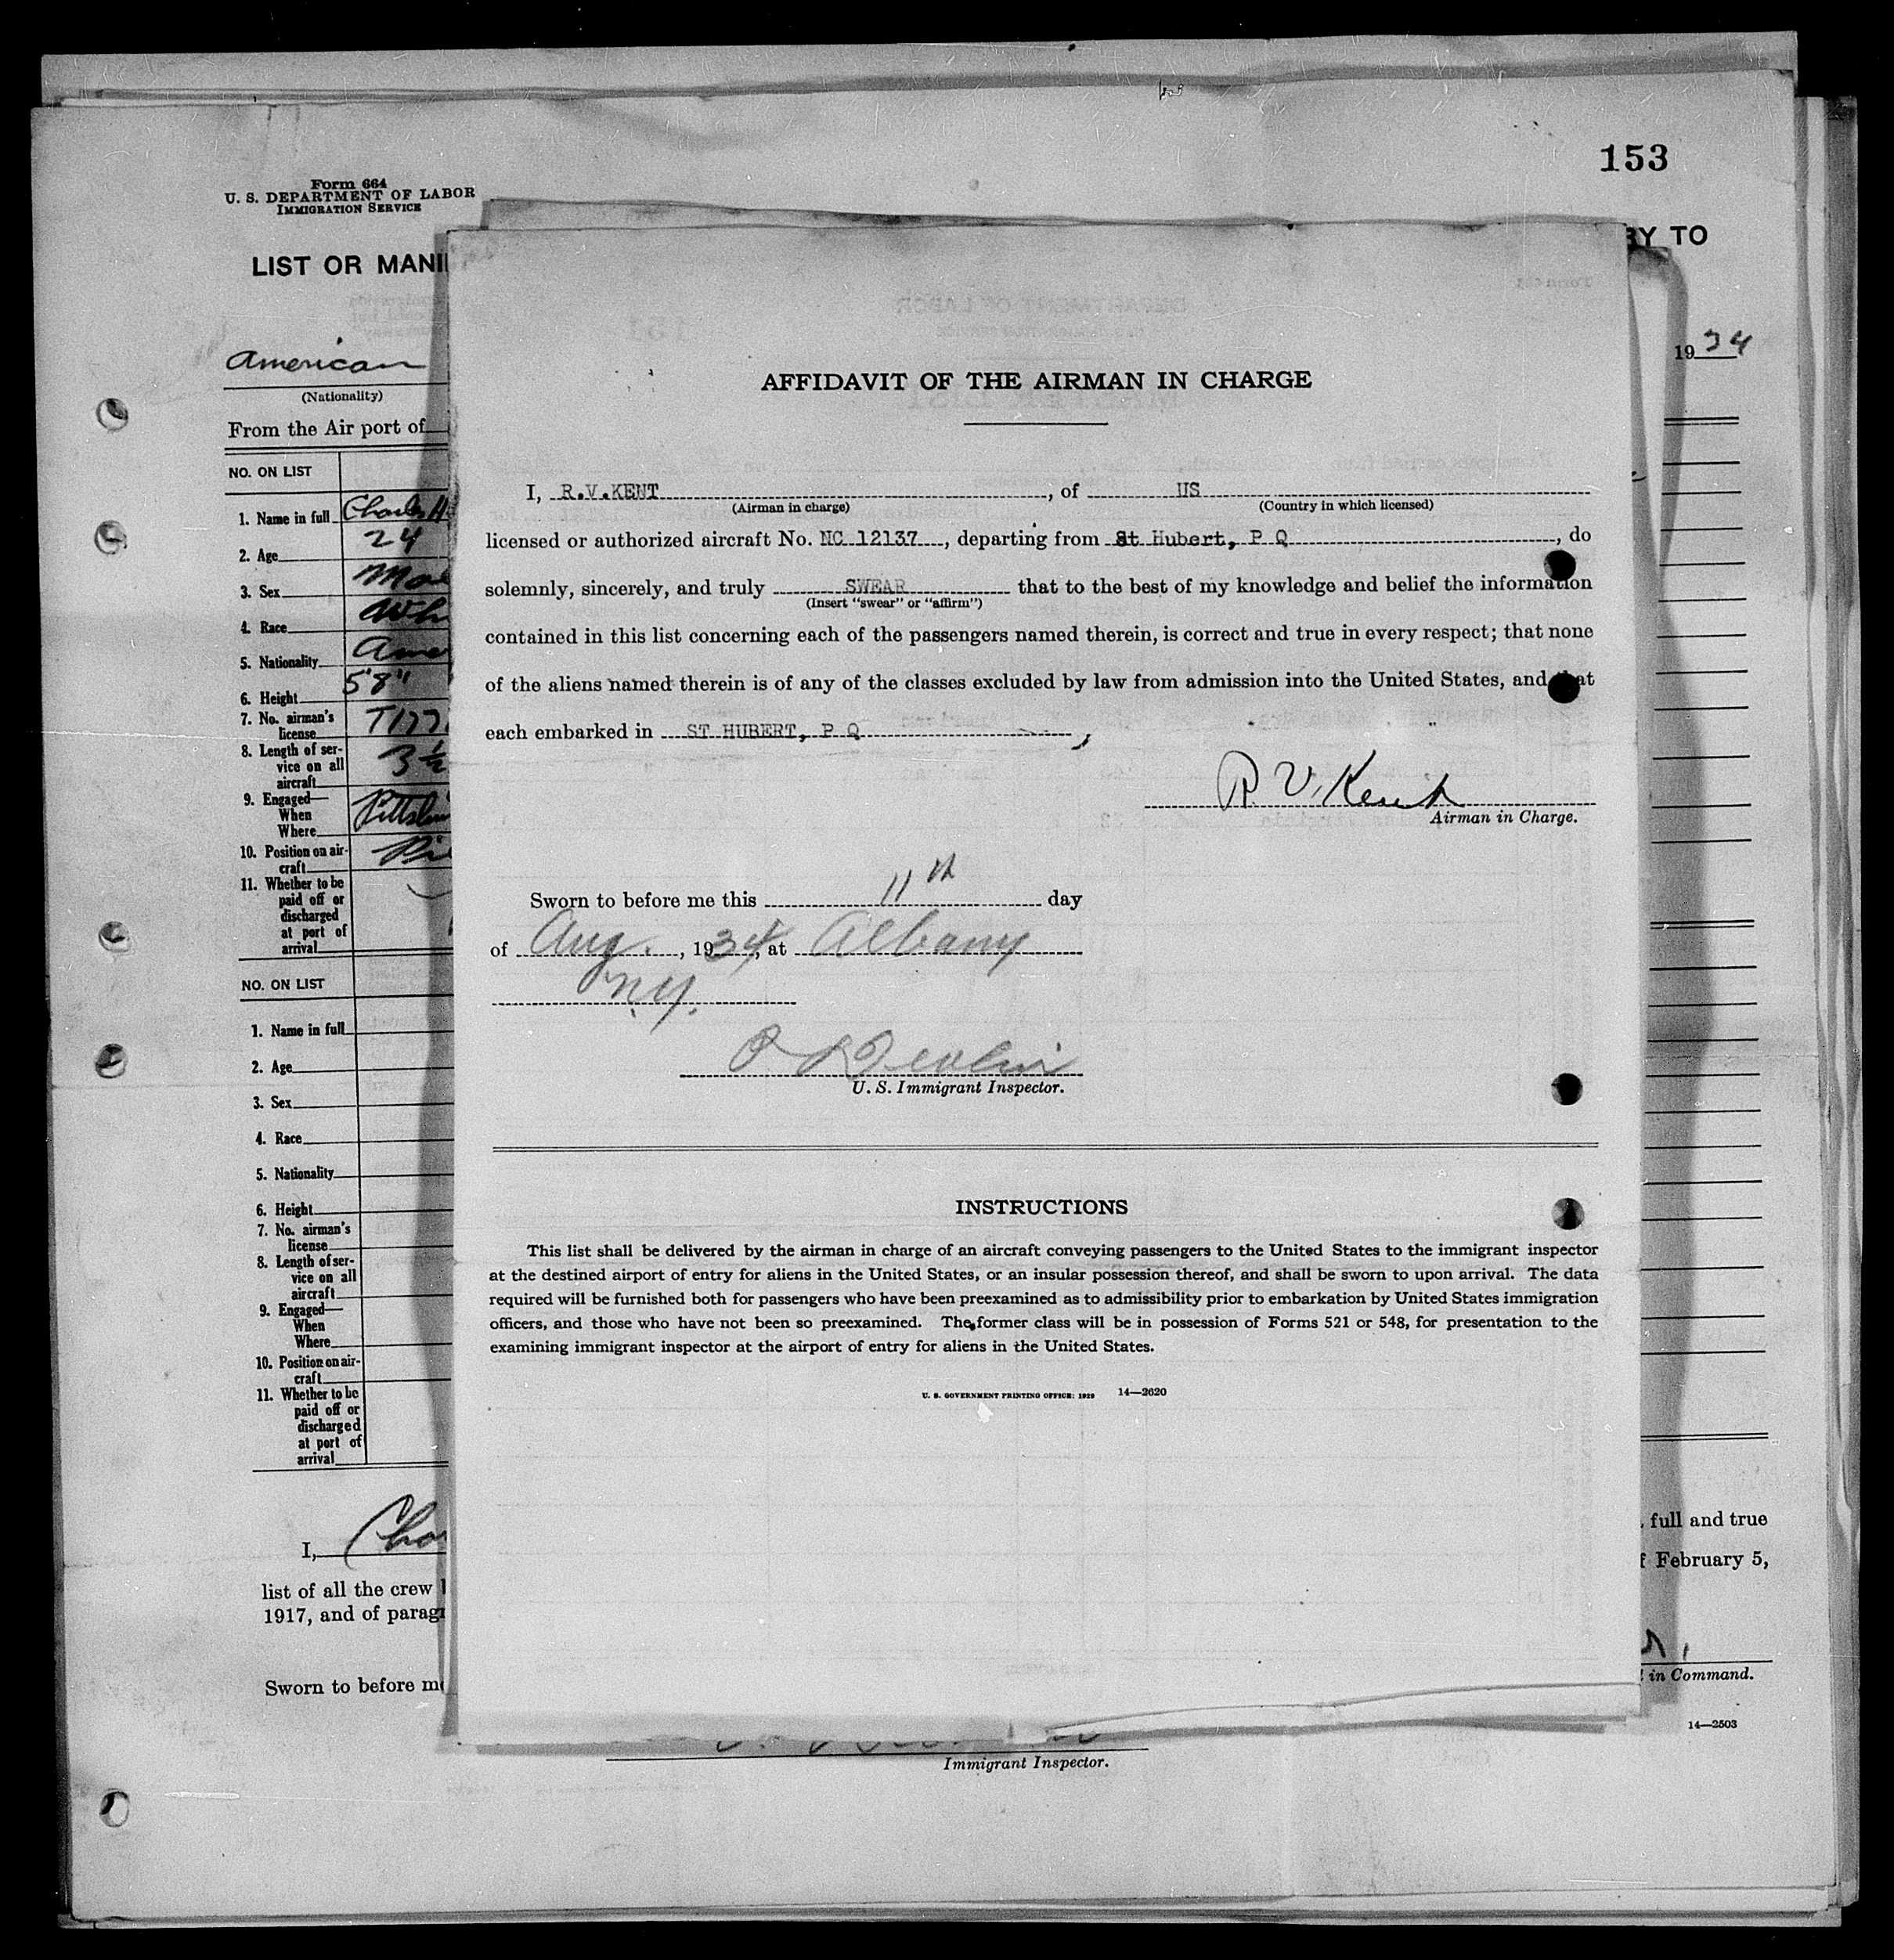 153
Form 664
U. S. DEPARTMENT OF LABOR
IMMIGRATION SERVICE
LIST OR MANI
RY TO
American
(Nationality)
1934
From the Air port of
NO. ON LIST
1. Name in full Charles H
2. Age 24
3. Sex
4. Race
5. Nationality
6. Height 5'8"
7. No. airman's
license
8. Length of ser-
vice on all
aircraft 3½
9. Engaged—
When
Where
10. Position on air-
craft
11. Whether to be
paid off or
discharged
at port of
arrival
NO. ON LIST
1. Name in full
2. Age
3. Sex
4. Race
5. Nationality
6. Height
7. No. airman's
license
8. Length of ser-
vice on all
aircraft
9. Engaged—
When
Where
10. Position on air-
craft
11. Whether to be
paid off or
discharged
at port of
arrival
I,
list of all the crew
1917, and of parag
Sworn to before m
full and true
f February 5,
in Command.
14—2503
Immigrant Inspector.
AFFIDAVIT OF THE AIRMAN IN CHARGE
I, R.V.KENT, of US
(Airman in charge) (Country in which licensed)
licensed or authorized aircraft No. NC 12137, departing from St Hubert, P Q, do
solemnly, sincerely, and truly SWEAR that to the best of my knowledge and belief the information
(Insert "swear" or "affirm")
contained in this list concerning each of the passengers named therein, is correct and true in every respect; that none
of the aliens named therein is of any of the classes excluded by law from admission into the United States, and that
each embarked in ST HUBERT, P Q,
R. V. Kent
Airman in Charge.
Sworn to before me this 11th day
of Aug., 1934, at Albany
N.Y.
U. S. Immigrant Inspector.
INSTRUCTIONS
This list shall be delivered by the airman in charge of an aircraft conveying passengers to the United States to the immigrant inspector
at the destined airport of entry for aliens in the United States, or an insular possession thereof, and shall be sworn to upon arrival. The data
required will be furnished both for passengers who have been preexamined as to admissibility prior to embarkation by United States immigration
officers, and those who have not been so preexamined. The former class will be in possession of Forms 521 or 548, for presentation to the
examining immigrant inspector at the airport of entry for aliens in the United States.
U. S. GOVERNMENT PRINTING OFFICE: 1929 14—2620